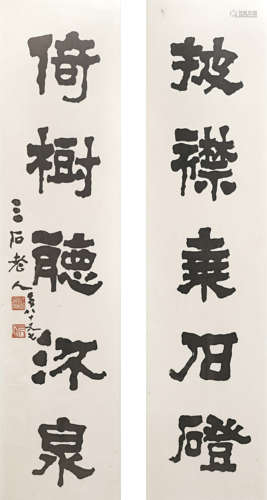 披襟乘石磴
倚樹聽流泉
三石老人